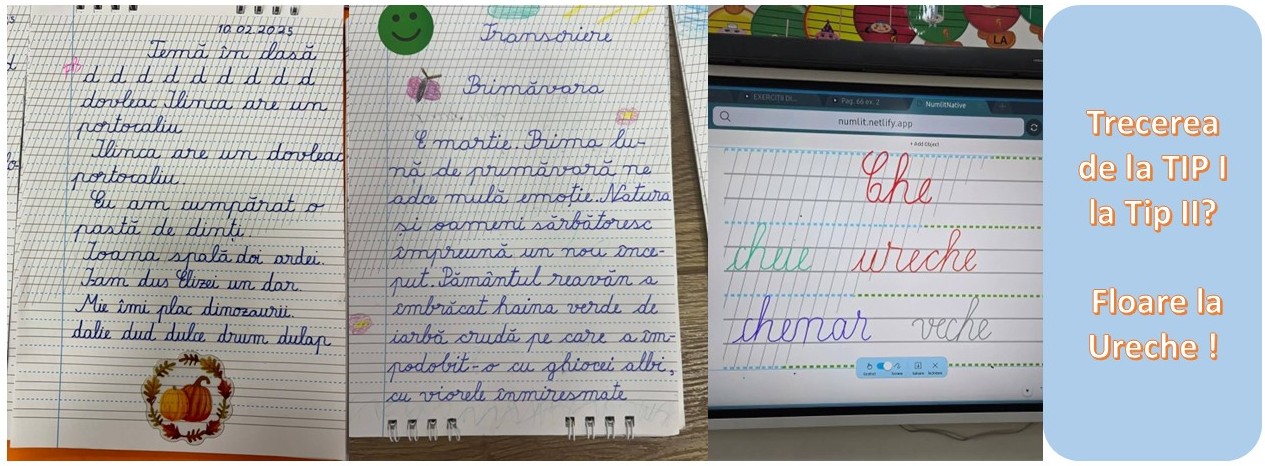 10.02.2025
Temă în clasă
d d d d d d d d d
dovleac Ilinca are un
portocaliu
Ilinca are un dovleac
portocaliu.
Eu am cumpărat o
pastă de dinți.
Ioana spală doi ardei.
I-am dus Elizei un dar.
Mie îmi plac dinozaurii.
dalie dud dulce drum dulap
Transcriere
Primăvara
E martie. Prima lu-
nă de primăvară ne
adce multă emoție. Natura
și oameni sărbătoresc
împreună un nou înce-
put. Pământul reavăn a
embrăcat haina verde de
iarbă crudă pe care a îm-
podobit-o cu ghiocei albi,
cu viorele înmiresmate
LA
EXERCIȚII DI...
Pag. 66 ex. 2
NumlitNative
numlit.netlify.app
+ Add Object
Che
cheie ureche
chenar veche
Trecerea
de la TIP I
la Tip II?
Floare la
Ureche !